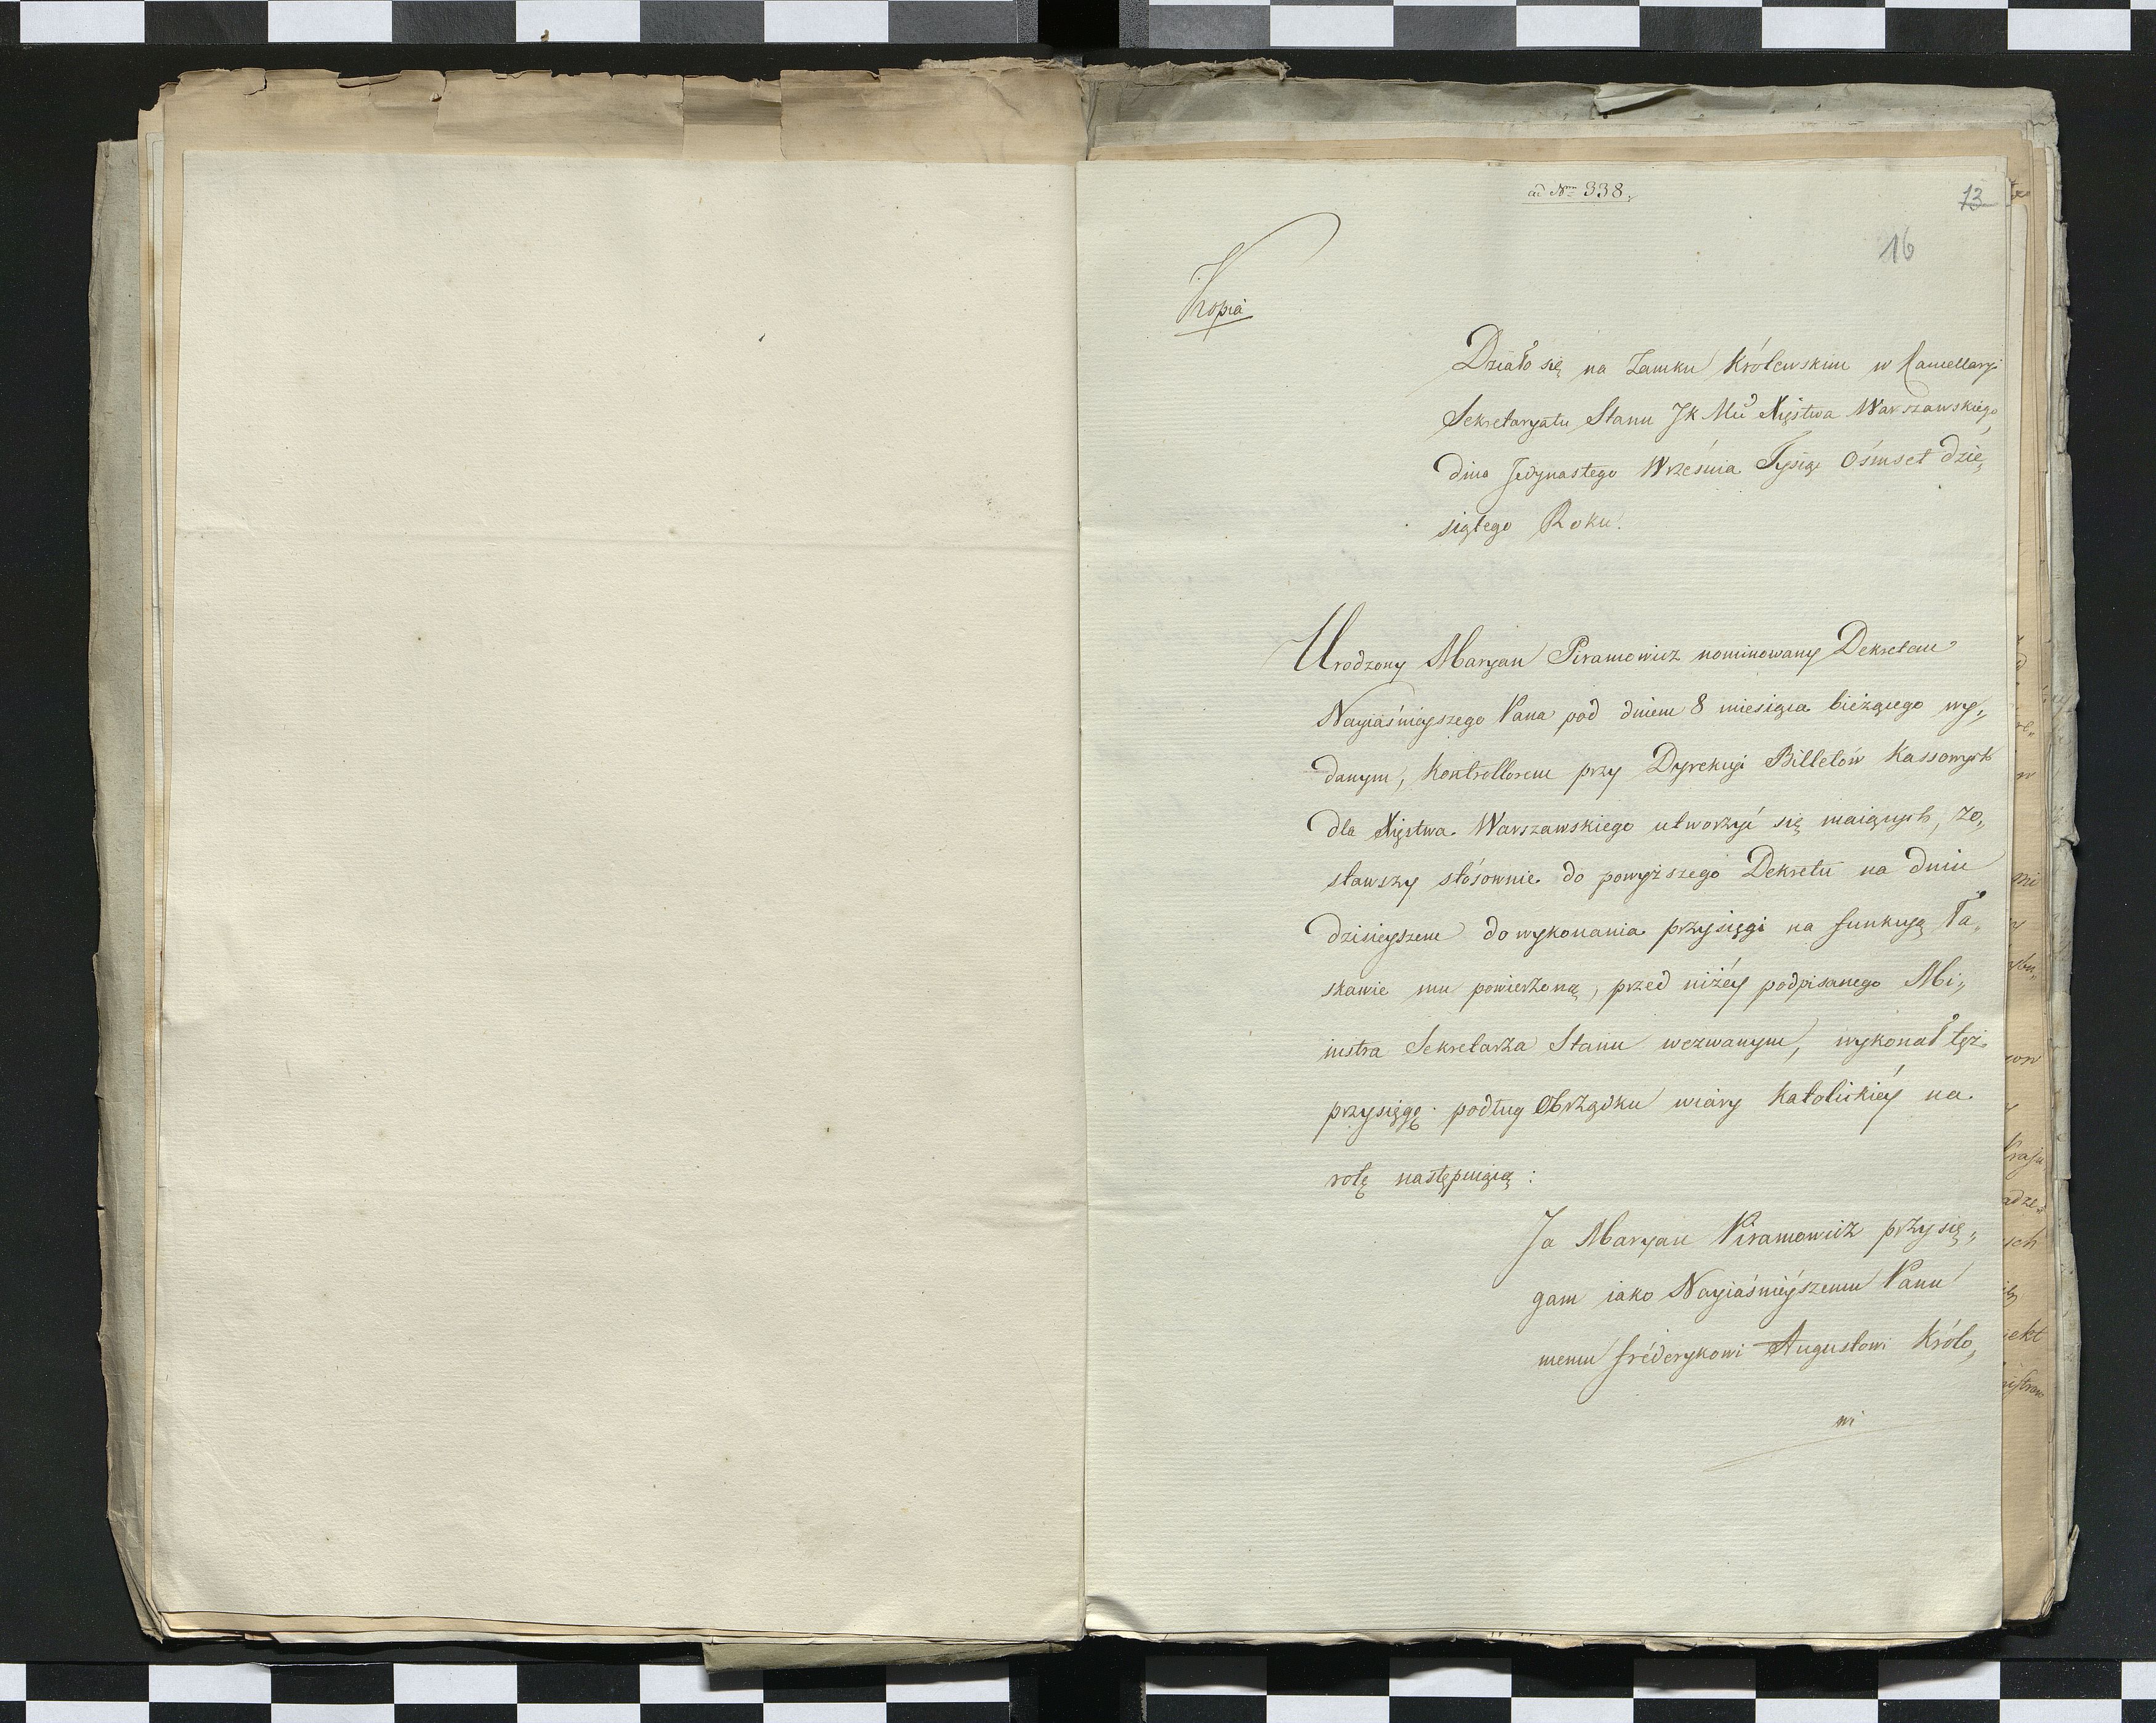 ad Nrm 338.
13
16
Kopia
Działo się na Zamku Królewskim w Kancellaryi
Sekretaryatu Stanu JK Mci Xięstwa Warszawskiego
dnia Jedynastego Września Tysiąc Ośmset dzie„
siątego Roku.
Urodzony Maryan Piramowicz nominowany Dekretem
Nayiaśnieyszego Pana pod dniem 8 miesiąca bieżącego wy„
danym, Kontrollorem przy Dyrekcyi Billetów Kassowych
dla Xięstwa Warszawskiego utworzyć się maiących, zo„
stawszy stósownie do powyższego Dekretu na dniu
dzisieyszem do wykonania przysięgi na funkcyą ła„
skawie mu powierzoną, przed niżéy podpisanego Mi„
nistra Sekretarza Stanu wezwanym, wykonał tęż
przysięgę podług Obrządku wiary Katolickiéy na
rotę następuiącą:
Ja Maryan Piramowicz przysię„
gam iako Nayiaśnieyszemu Panu
memu fréderykowi Augustowi Królo„
wi